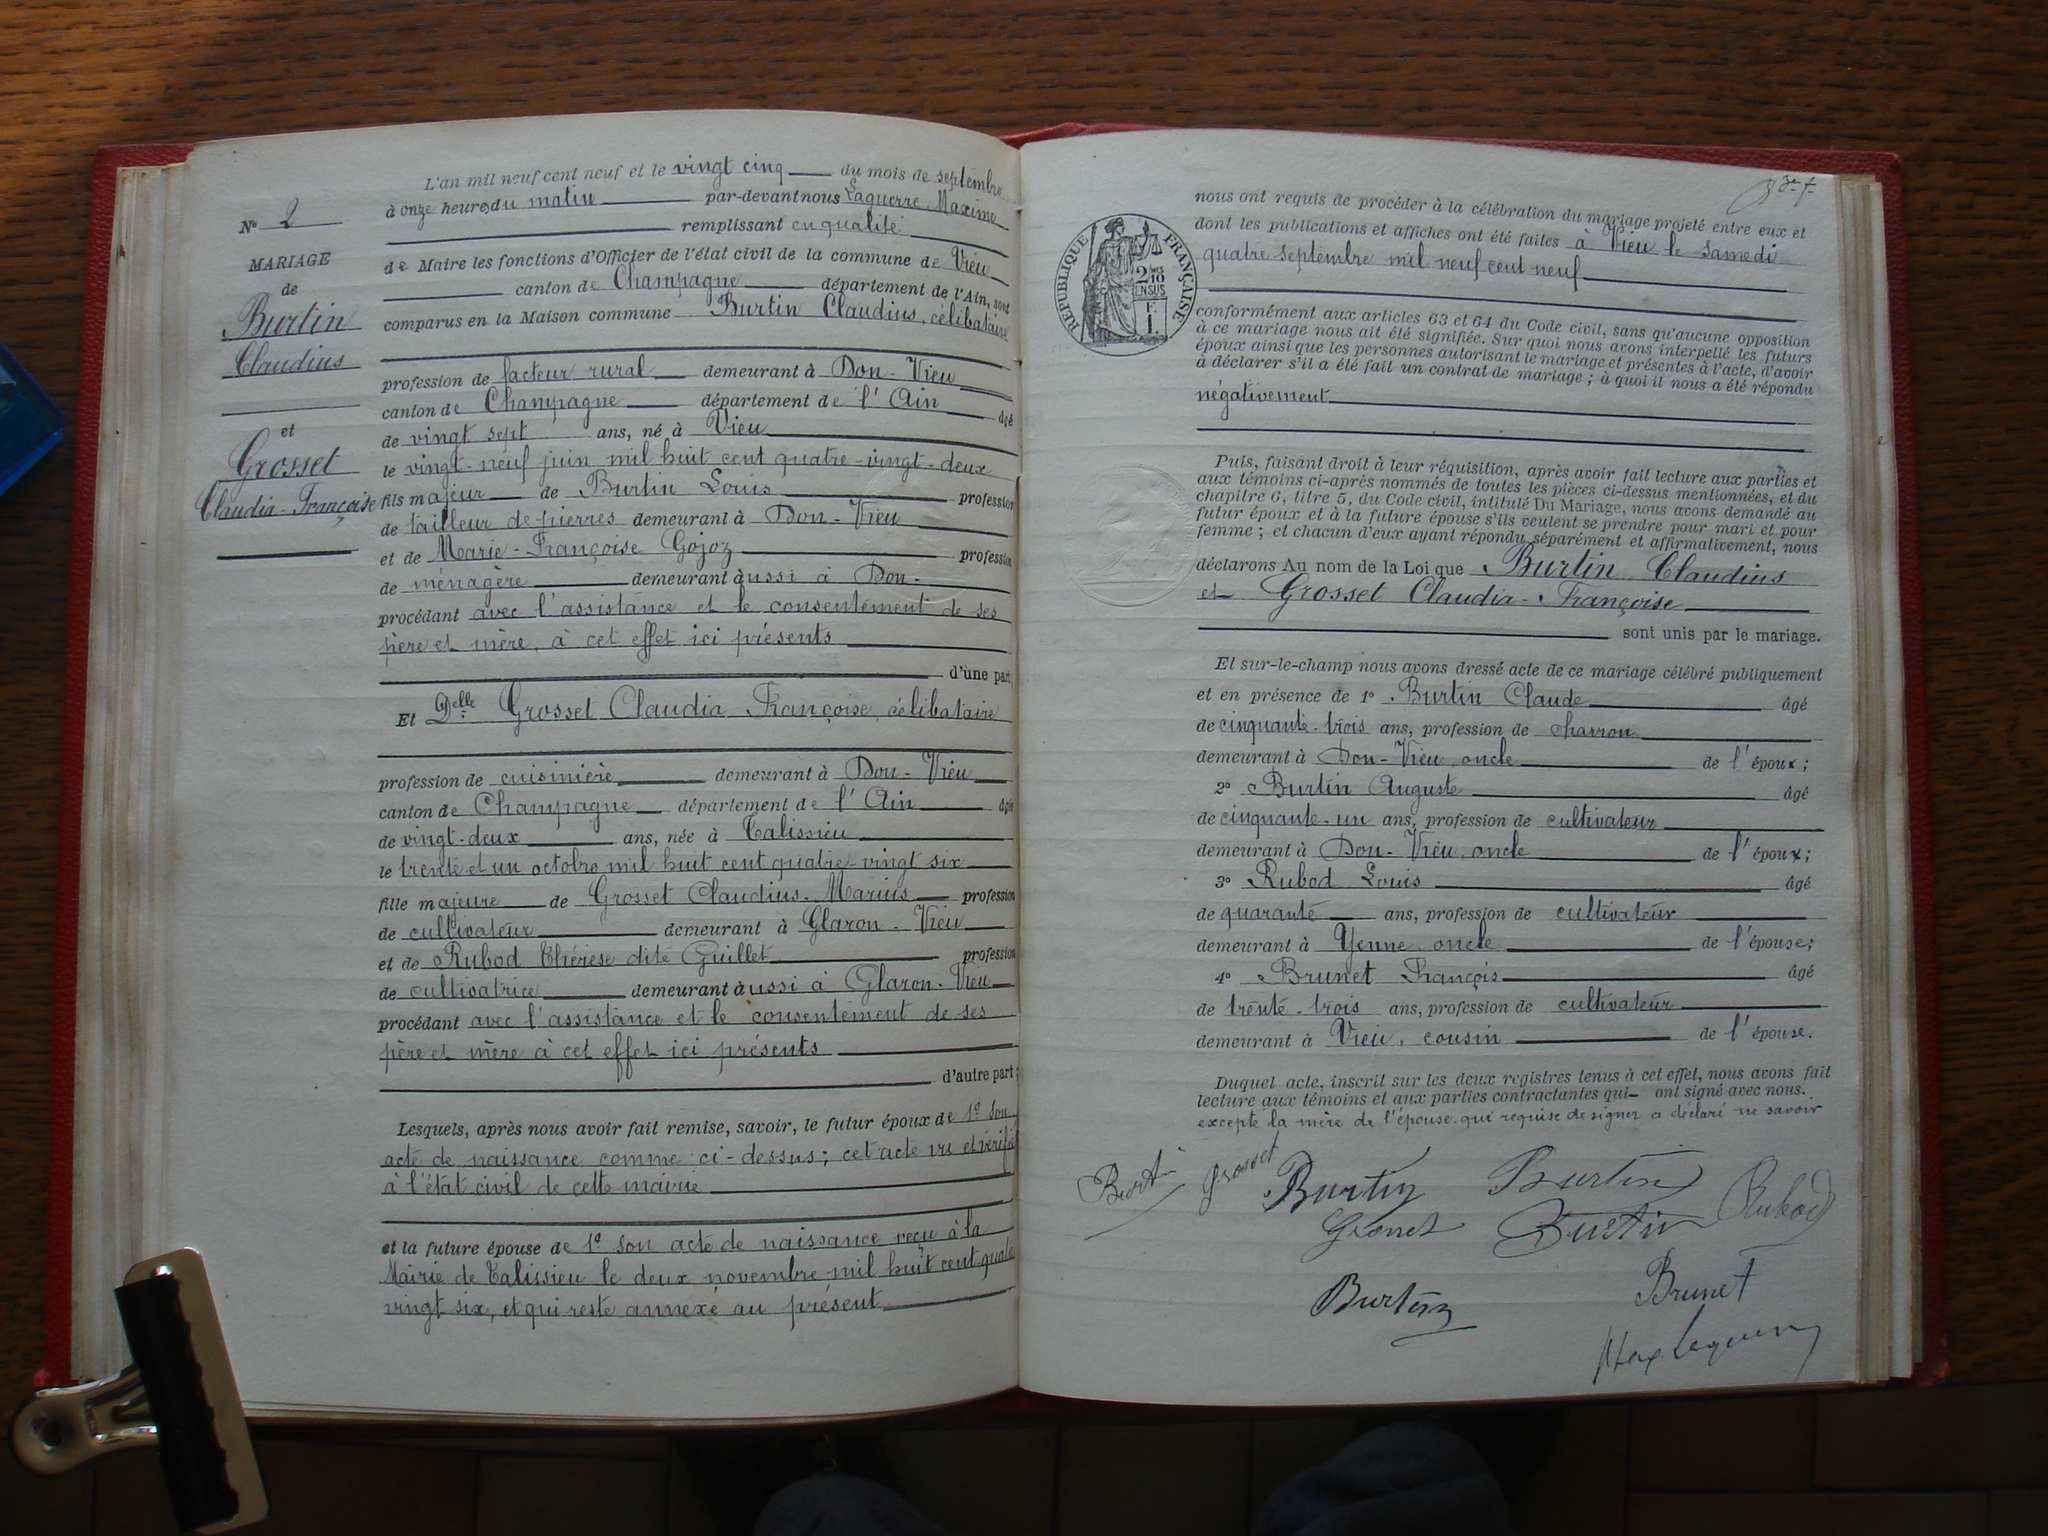 L'an mil neuf cent neuf et le vingt cinq du mois de septembre
à onze heures du matin par-devant nous Laguerre Maxime
remplissant en qualité
de Maire les fonctions d'Officier de l'état civil de la commune de Vieu
canton de Champagne département de l'Ain, sont
comparus en la Maison commune Burtin Claudius, célibataire
profession de facteur rural demeurant à Don-Vieu
canton de Champagne département de l'Ain âgé
de vingt sept ans, né à Vieu
le vingt-neuf juin mil huit cent quatre-vingt-deux
fils majeur de Burtin Louis profession
de tailleur de pierres demeurant à Don-Vieu
et de Marie-Françoise Gojoz profession
de ménagère demeurant aussi à Don-
procédant avec l'assistance et le consentement de ses
père et mère, à cet effet ici présents
d'une part
Et Delle Grosset Claudia Françoise, célibataire
profession de cuisinière demeurant à Don-Vieu
canton de Champagne département de l'Ain âgée
de vingt-deux ans, née à Talissieu
le trente et un octobre mil huit cent quatre-vingt six
fille majeure de Grosset Claudius-Marius profession
de cultivateur demeurant à Glaron-Vieu
et de Rubod Thérèse dite Guillet profession
de cultivatrice demeurant aussi à Glaron-Vieu
procédant avec l'assistance et le consentement de ses
père et mère à cet effet ici présents
d'autre part ;
Lesquels, après nous avoir fait remise, savoir, le futur époux de 1° son
acte de naissance comme ci-dessus; cet acte vu et vérifié
à l'état civil de cette mairie
et la future épouse de 1° son acte de naissance reçu à la
Mairie de Talissieu le deux novembre mil huit cent quatre
vingt six, et qui reste annexé au présent
N° 2
MARIAGE
de
Burtin
Claudius
et
Grosset
Claudia-Françoise
nous ont requis de procéder à la célébration du mariage projeté entre eux et
dont les publications et affiches ont été faites à Vieu le samedi
quatre septembre mil neuf cent neuf
RÉPUBLIQUE FRANÇAISE
conformément aux articles 63 et 64 du Code civil, sans qu'aucune opposition
à ce mariage nous ait été signifiée. Sur quoi nous avons interpellé les futurs
époux ainsi que les personnes autorisant le mariage et présentes à l'acte, d'avoir
à déclarer s'il a été fait un contrat de mariage ; à quoi il nous a été répondu
négativement
Puis, faisant droit à leur réquisition, après avoir fait lecture aux parties et
aux témoins ci-après nommés de toutes les pièces ci-dessus mentionnées, et du
chapitre 6, titre 5, du Code civil, intitulé Du Mariage, nous avons demandé au
futur époux et à la future épouse s'ils veulent se prendre pour mari et pour
femme ; et chacun d'eux ayant répondu séparément et affirmativement, nous
déclarons Au nom de la Loi que Burtin Claudius
et Grosset Claudia-Françoise
sont unis par le mariage.
Et sur-le-champ nous avons dressé acte de ce mariage célébré publiquement
et en présence de 1° Burtin Claude âgé
de cinquante-trois ans, profession de charron
demeurant à Don-Vieu, oncle de l'époux ;
2° Burtin Auguste âgé
de cinquante-un ans, profession de cultivateur
demeurant à Don-Vieu, oncle de l'époux;
3° Rubod Louis âgé
de quarante ans, profession de cultivateur
demeurant à Yenne, oncle de l'épouse;
4° Brunet François âgé
de trente-trois ans, profession de cultivateur
demeurant à Vieu, cousin de l'épouse.
Duquel acte, inscrit sur les deux registres tenus à cet effet, nous avons fait
lecture aux témoins et aux parties contractantes qui ont signé avec nous.
excepté la mère de l'épouse qui requise de signer a déclaré ne savoir
Grosset Burtin Burtin Rubod
Burtin
Burtin Brunet
Max Laguerre